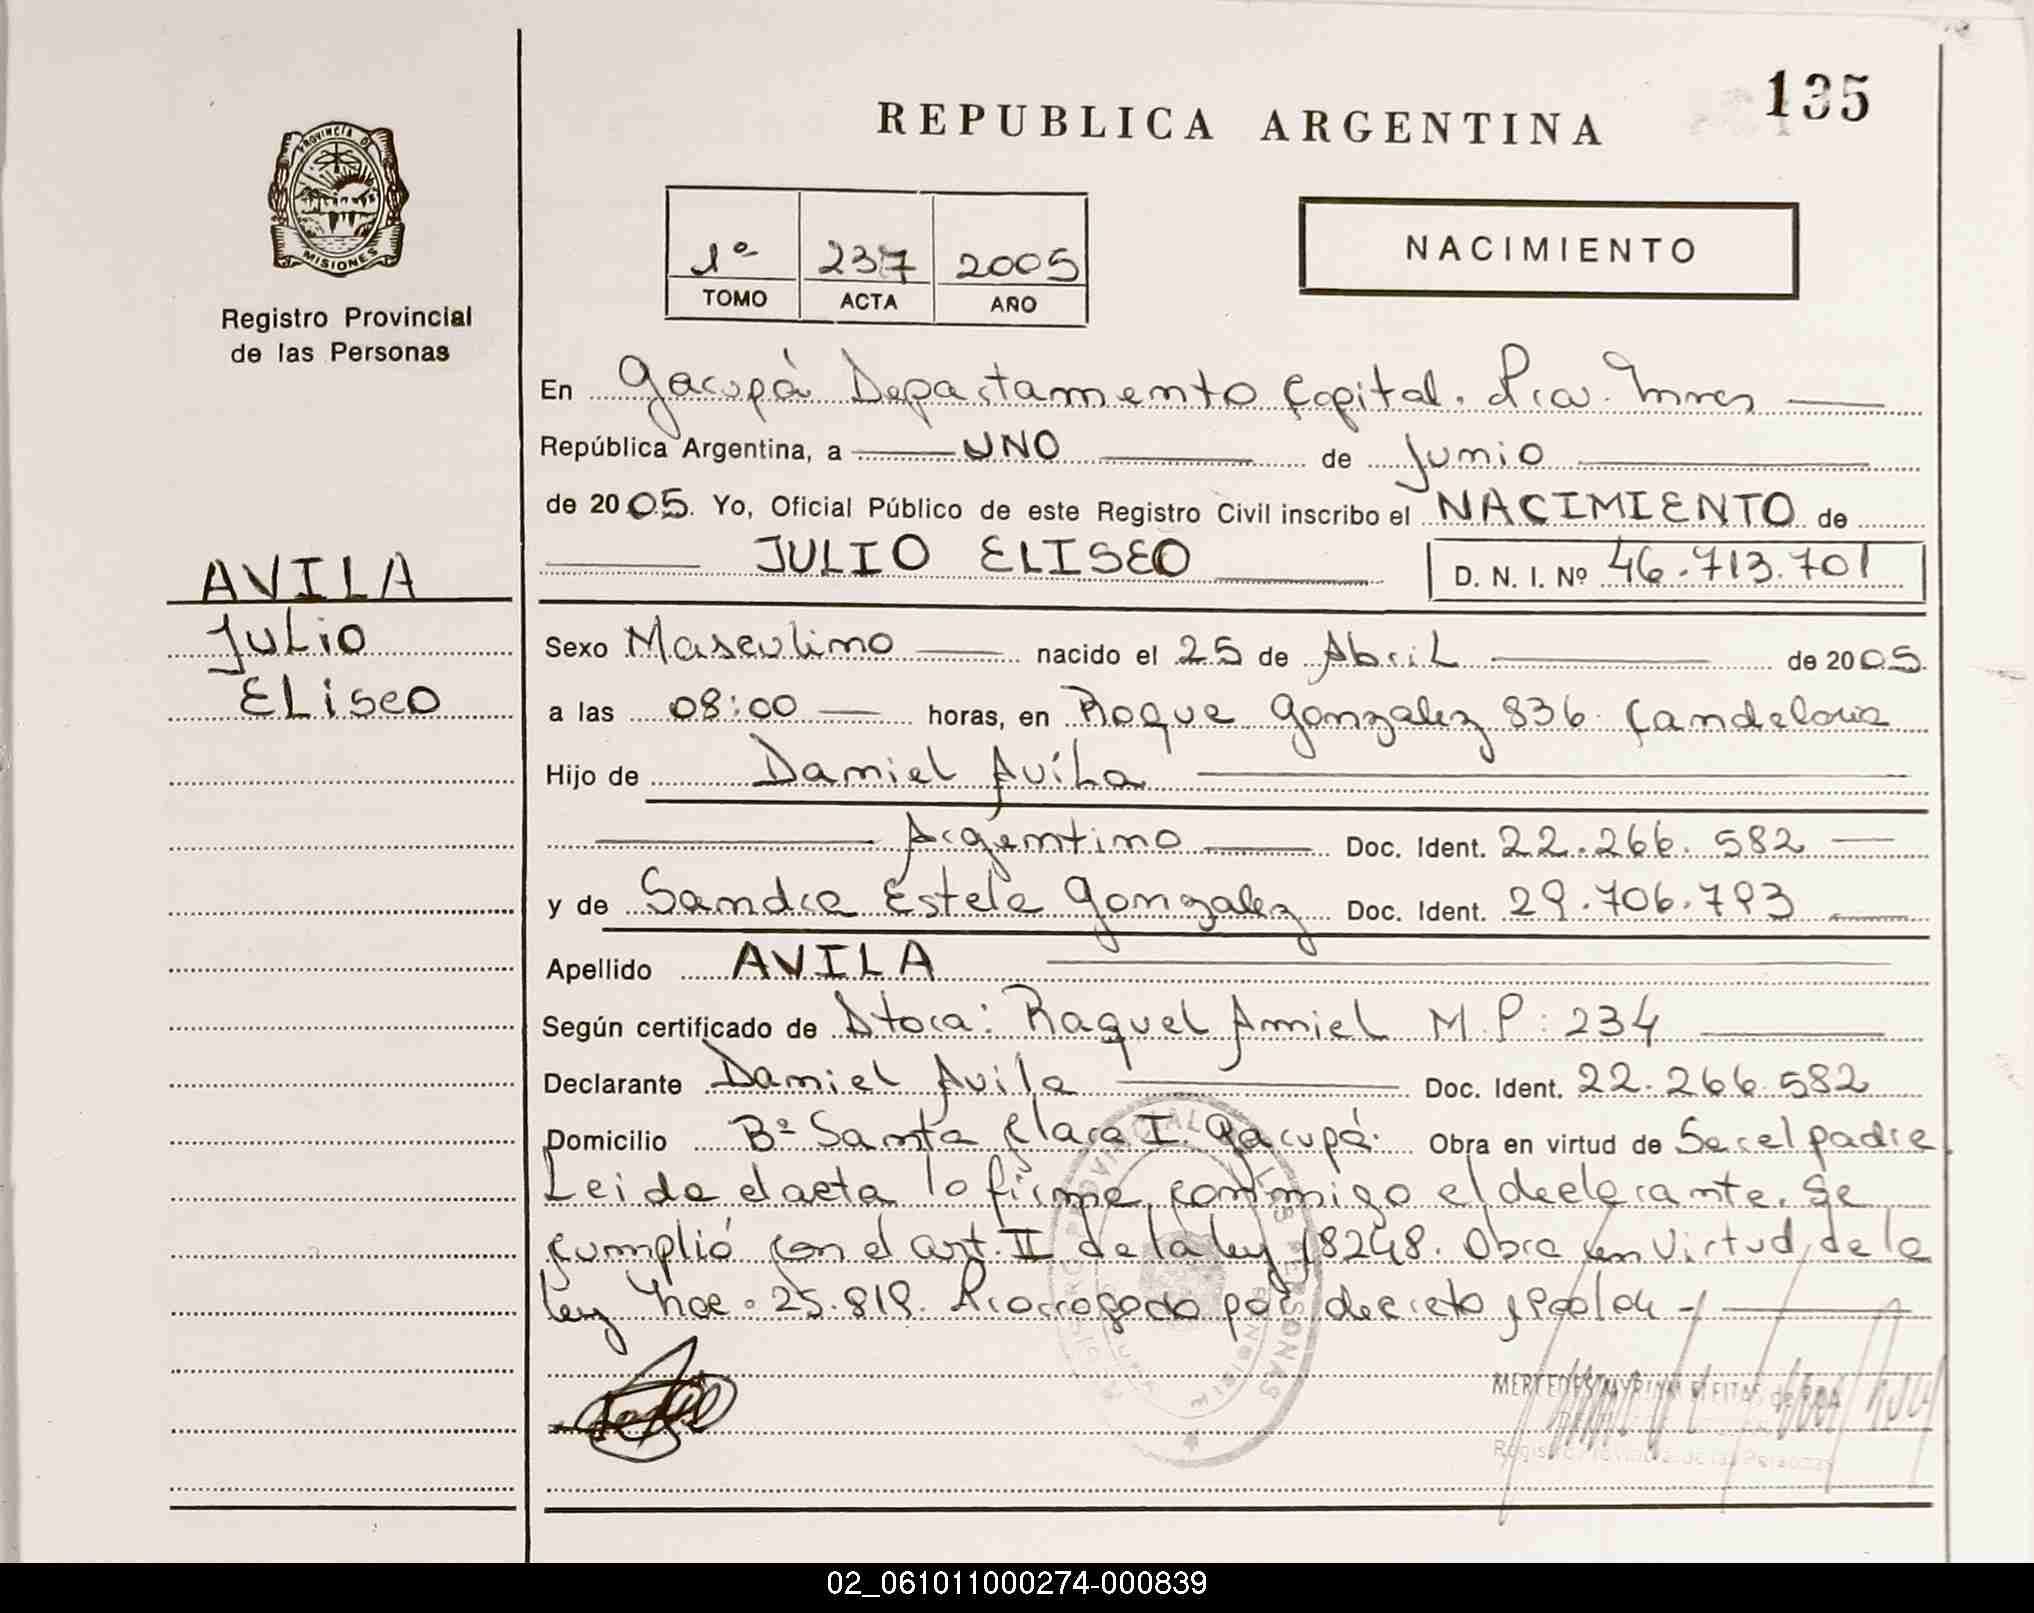 135
REPUBLICA ARGENTINA
PROVINCIA DE
MISIONES
Registro Provincial
de las Personas
1º 237 2005
TOMO ACTA AÑO
NACIMIENTO
En Garupá Departamento Capital. Pcia. Mnes
República Argentina, a UNO de Junio
de 2005. Yo, Oficial Público de este Registro Civil inscribo el NACIMIENTO de
JULIO ELISEO D. N. I. Nº 46.713.701
AVILA
Julio
Eliseo
Sexo Masculino nacido el 25 de Abril de 2005.
a las 08:00 horas, en Roque Gonzalez 836. Candelaria
Hijo de Daniel Avila
Argentino Doc. Ident. 22.266.582
y de Sandra Estela Gonzalez Doc. Ident. 29.706.793
Apellido AVILA
Según certificado de Dtora: Raquel Amiel M.P: 234
Declarante Daniel Avila Doc. Ident. 22.266.582
Domicilio Bº Santa Clara I. Garupá. Obra en virtud de Ser el padre
Leida el acta la firma conmigo el declarante. Se
cumplió con el art. II de la ley 18248. Obra en virtud de la
ley Nac. 25.819. Prorrogado por decreto
REGISTRO PROVINCIAL DE LAS PERSONAS
MISIONES
MERCEDES MYRIAM FLEITAS de
Registro Provincial de las Personas
02_061011000274-000839